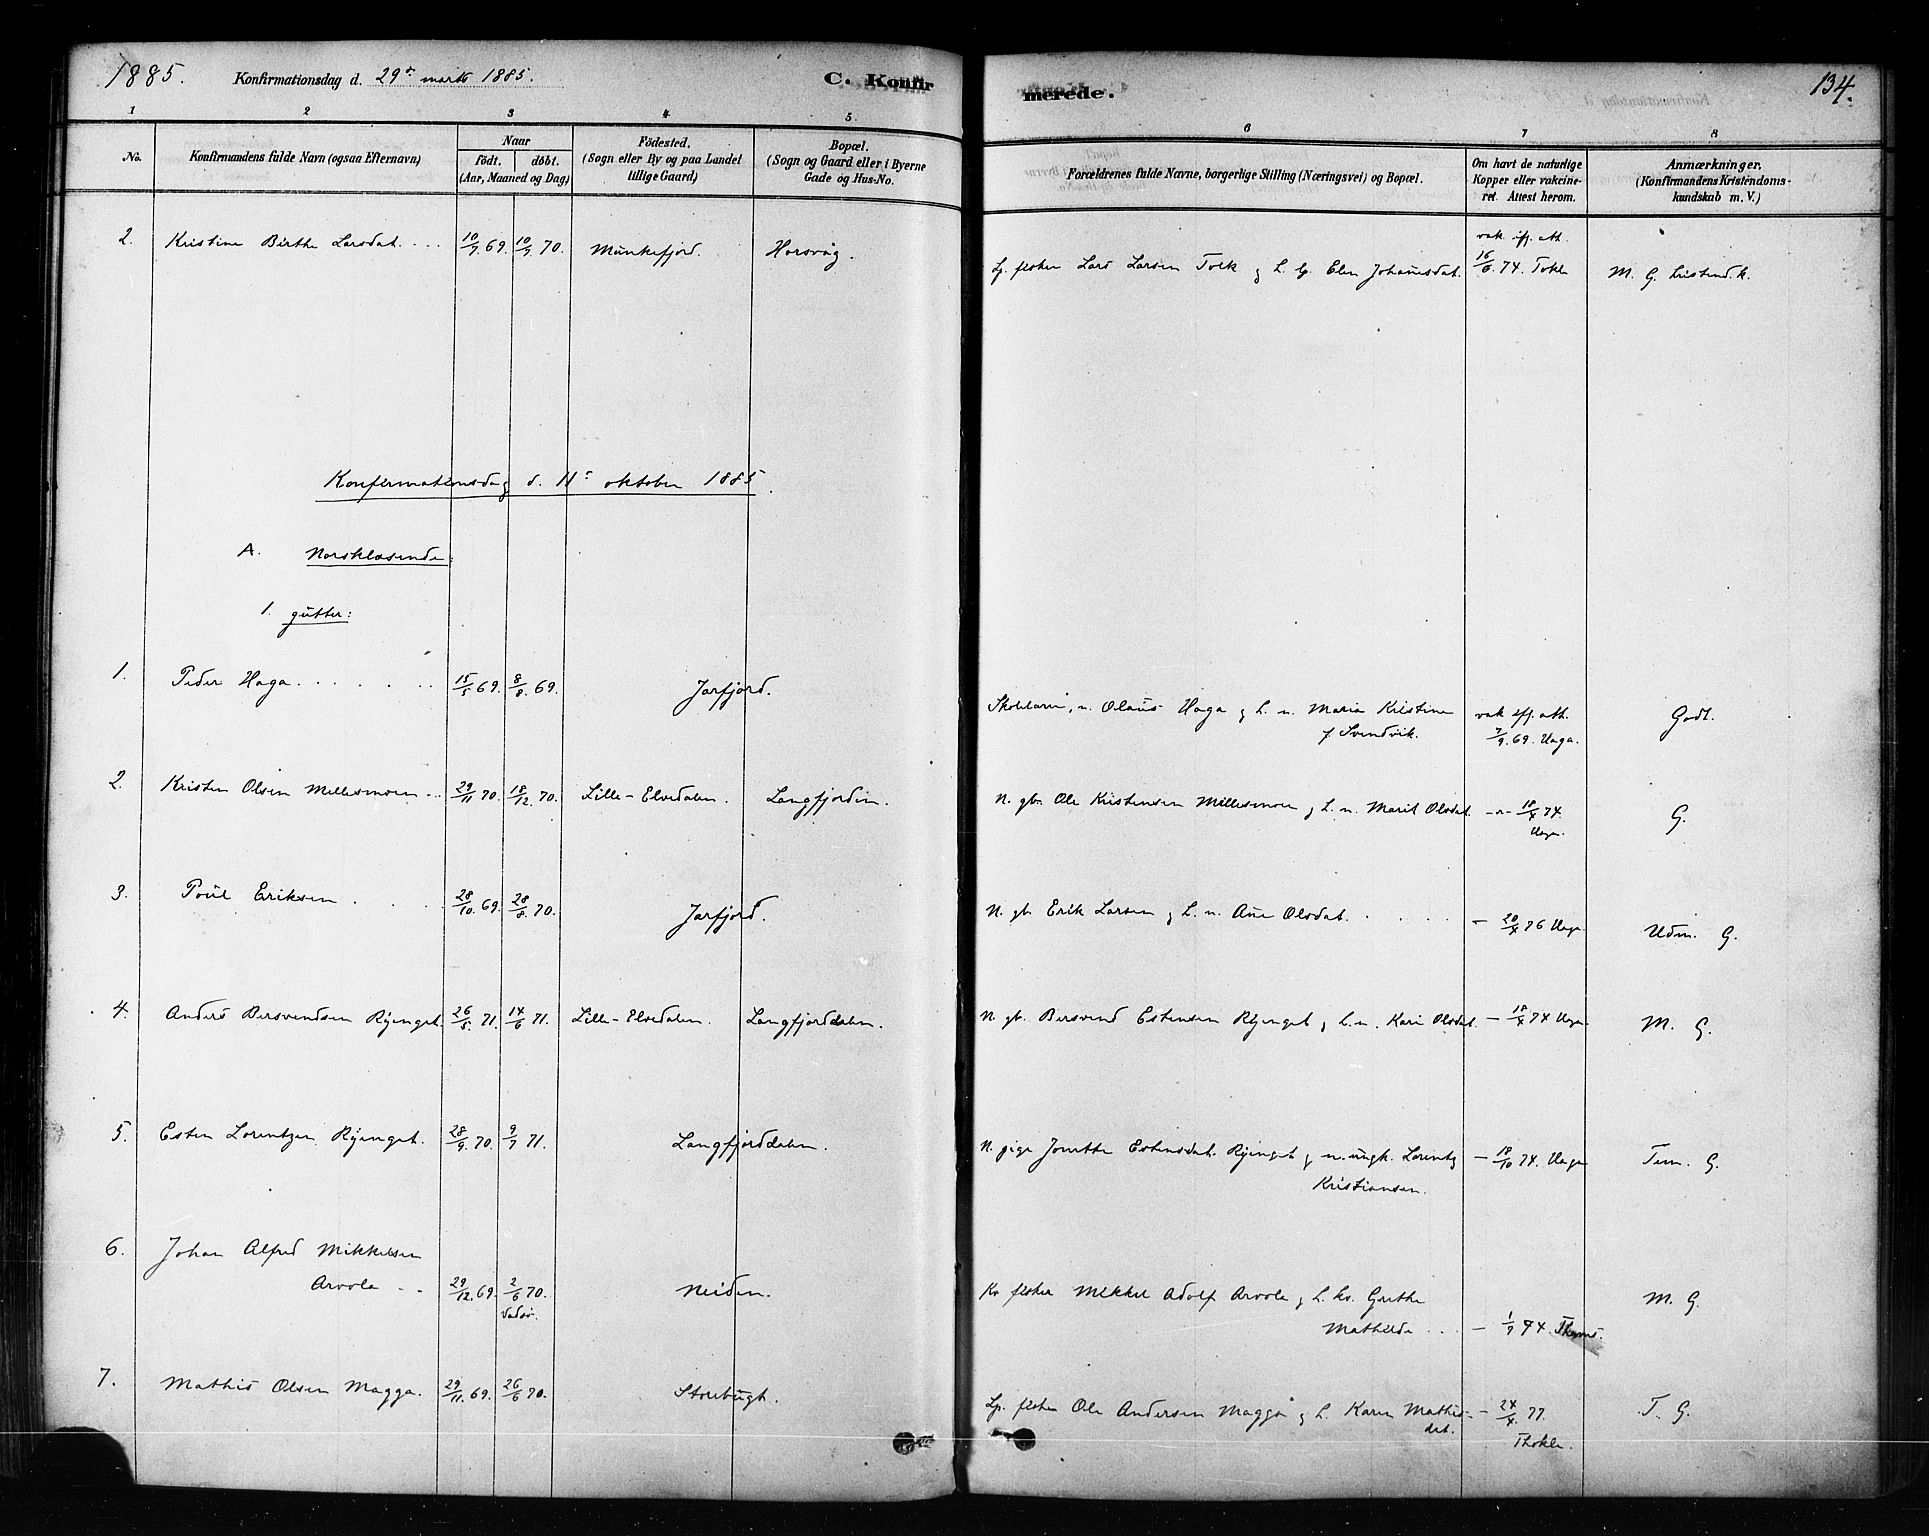 1885. Konfirmationsdag d. 29de marts 1885. C. Konfirmerede. 134.
1 2 3 4 5. 6 7 8
No. Konfirmandens fulde Navn (ogsaa Efternavn) Naar födt. döbt. (Aar, Maaned og Dag) Födested. (Sogn eller By og paa Landet tillige Gaard) Bopæl. (Sogn og Gaard eller i Byerne Gade og Hus-No. Forældrenes fulde Navne, borgerlige Stilling (Næringsvei) og Bopæl. Om havt de naturlige Kopper eller vakcineret. Attest herom. Anmærkninger. (Konfirmandens Kristendomskundskab m. V.)
2. Kristine Birthe Larsdat. 10/9 69. 10/9 70. Munkefjord. Horsvåg. Lp. fisker Lars Larsen Tolk og h. lp. Elen Johannesdat. vak. ifj. att. 16/6 74. Tokle M. G. kristend.k.
Konfirmationsdag d. 11te oktober 1885.
A. Norsklæsende:
1. gutter:
1. Peder Haga 15/5 69. 8/8 69. Jarfjord. Skolelærer, n. Olaus Haga og h. n. Maria Kristine f. Svendvik. vak. ifj. att. 7/9 69. Haga. Godt.
2. Kristen Olsen Millesmoen 29/11 70. 18/12 70. Lille-Elvedalen. Langfjorden. N. gb. Ole Kristensen Millesmoen og h. n. Marit Olsdat. -"- 18/4 74. Haga. G.
3. Poul Eriksen 28/10 69. 28/8 70. Jarfjord. N. gb. Erik Larsen og h. n. Ane Olsdat. - 20/4 76 Haga Udm. G.
4. Anders Bersvendsen Ryenget. 26/5 71. 14/6 71. Lille-Elvedalen. Langfjorddalen. N. gb. Bersvend Estensen Ryenget og h. n. Kari Olsdat. - 18/4 74 Haga. M. G.
5. Esten Lorentzen Ryenget. 28/9 70. 9/7 71. Langfjorddalen. N. pige Jonette Estensdat. Ryenget og n. ungk. Lorentz Kristiansen. - 18/10 74. Haga Tem. G.
6. Johan Alfred Mikkelsen Arvola 29/12 69. 2/6 70. Vadsö. Neiden. Kv. fisker Mikkel Adolf Arvola og h. kv. Grethe Mathilde - 1/9 74. M. G.
7. Mathis Olsen Magga. 29/11 69. 26/6 70. Storbugt. Lp. fisker Ole Andersen Magga og h. Karen Mathisdat. - 24/4 77. Thokle. T. G.